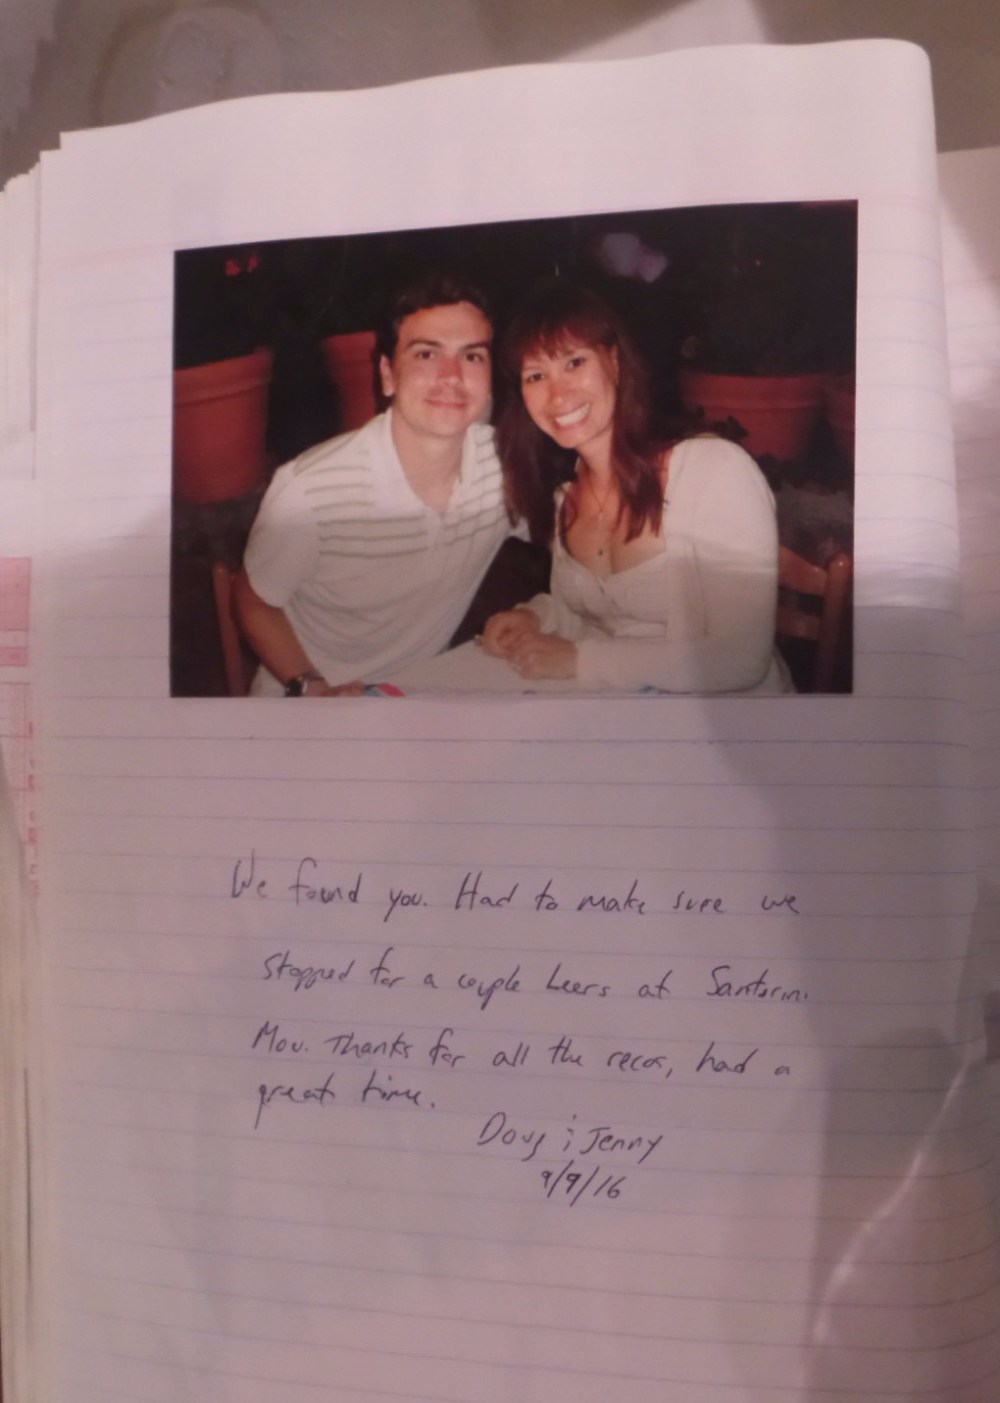 We found you. Had to make sure we
stopped for a couple beers at Santorini
Mou. Thanks for all the recos, had a
great time.
Doug & Jenny
9/9/16